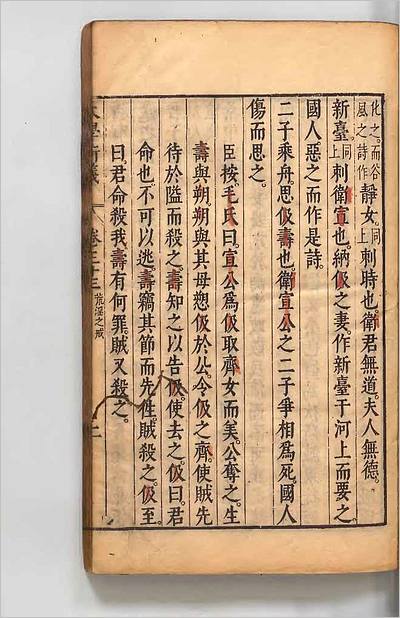 化之而谷
風之詩作
靜女同
上刺時也衛君無道夫人無德
新臺同
上刺衛宣也納伋之妻作新臺于河上而要之
國人惡之而作是詩
二子乘舟思伋壽也衛宣公之二子爭相爲死國人
傷而思之
臣按毛氏曰宣公爲伋取齊女而美公奪之生
壽與朔朔與其母愬伋於公公令伋之齊使賊先
待於隘而殺之壽知之以告伋使去之伋曰君
命也不可以逃壽竊其節而先往賊殺之伋至
曰君命殺我壽有何罪賊又殺之
大學衍義 卷三十三 荒淫之戒 二